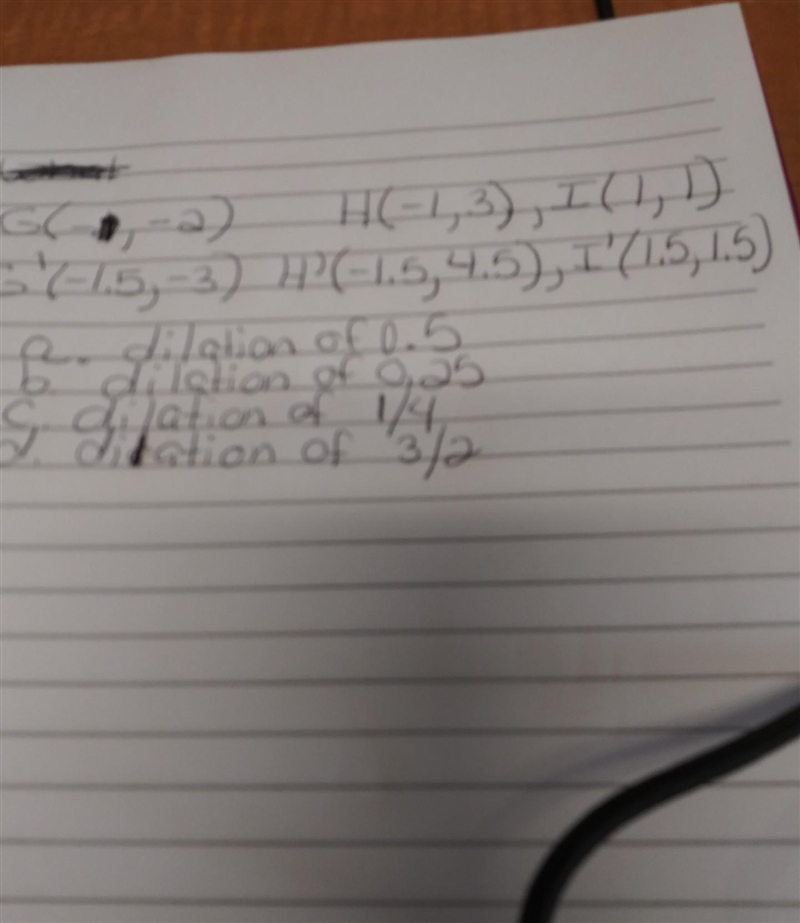 G(-1, -2) H(-1, 3), I(1, 1)
G'(-1.5, -3) H'(-1.5, 4.5), I'(1.5, 1.5)
a. dilation of 0.5
b. dilation of 0.25
c. dilation of 1/4
d. dilation of 3/2